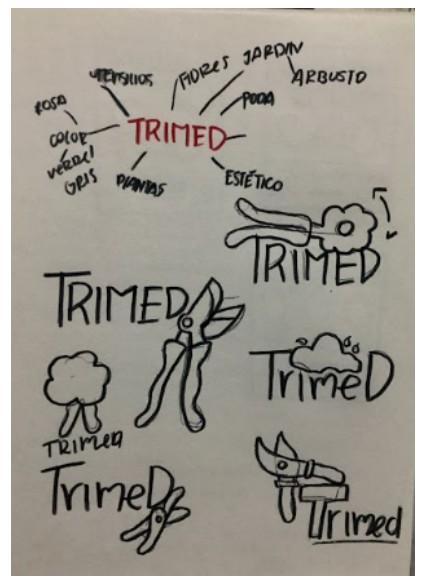 UTENSILIOS
FLORES
JARDIN
ARBUSTO
ROSA
PODA
COLOR
TRIMED
VERDE
GRIS
PLANTAS
ESTÉTICO
TRIMED
TRIMED
TrimeD
TRIMED
TrimeD
Trimed